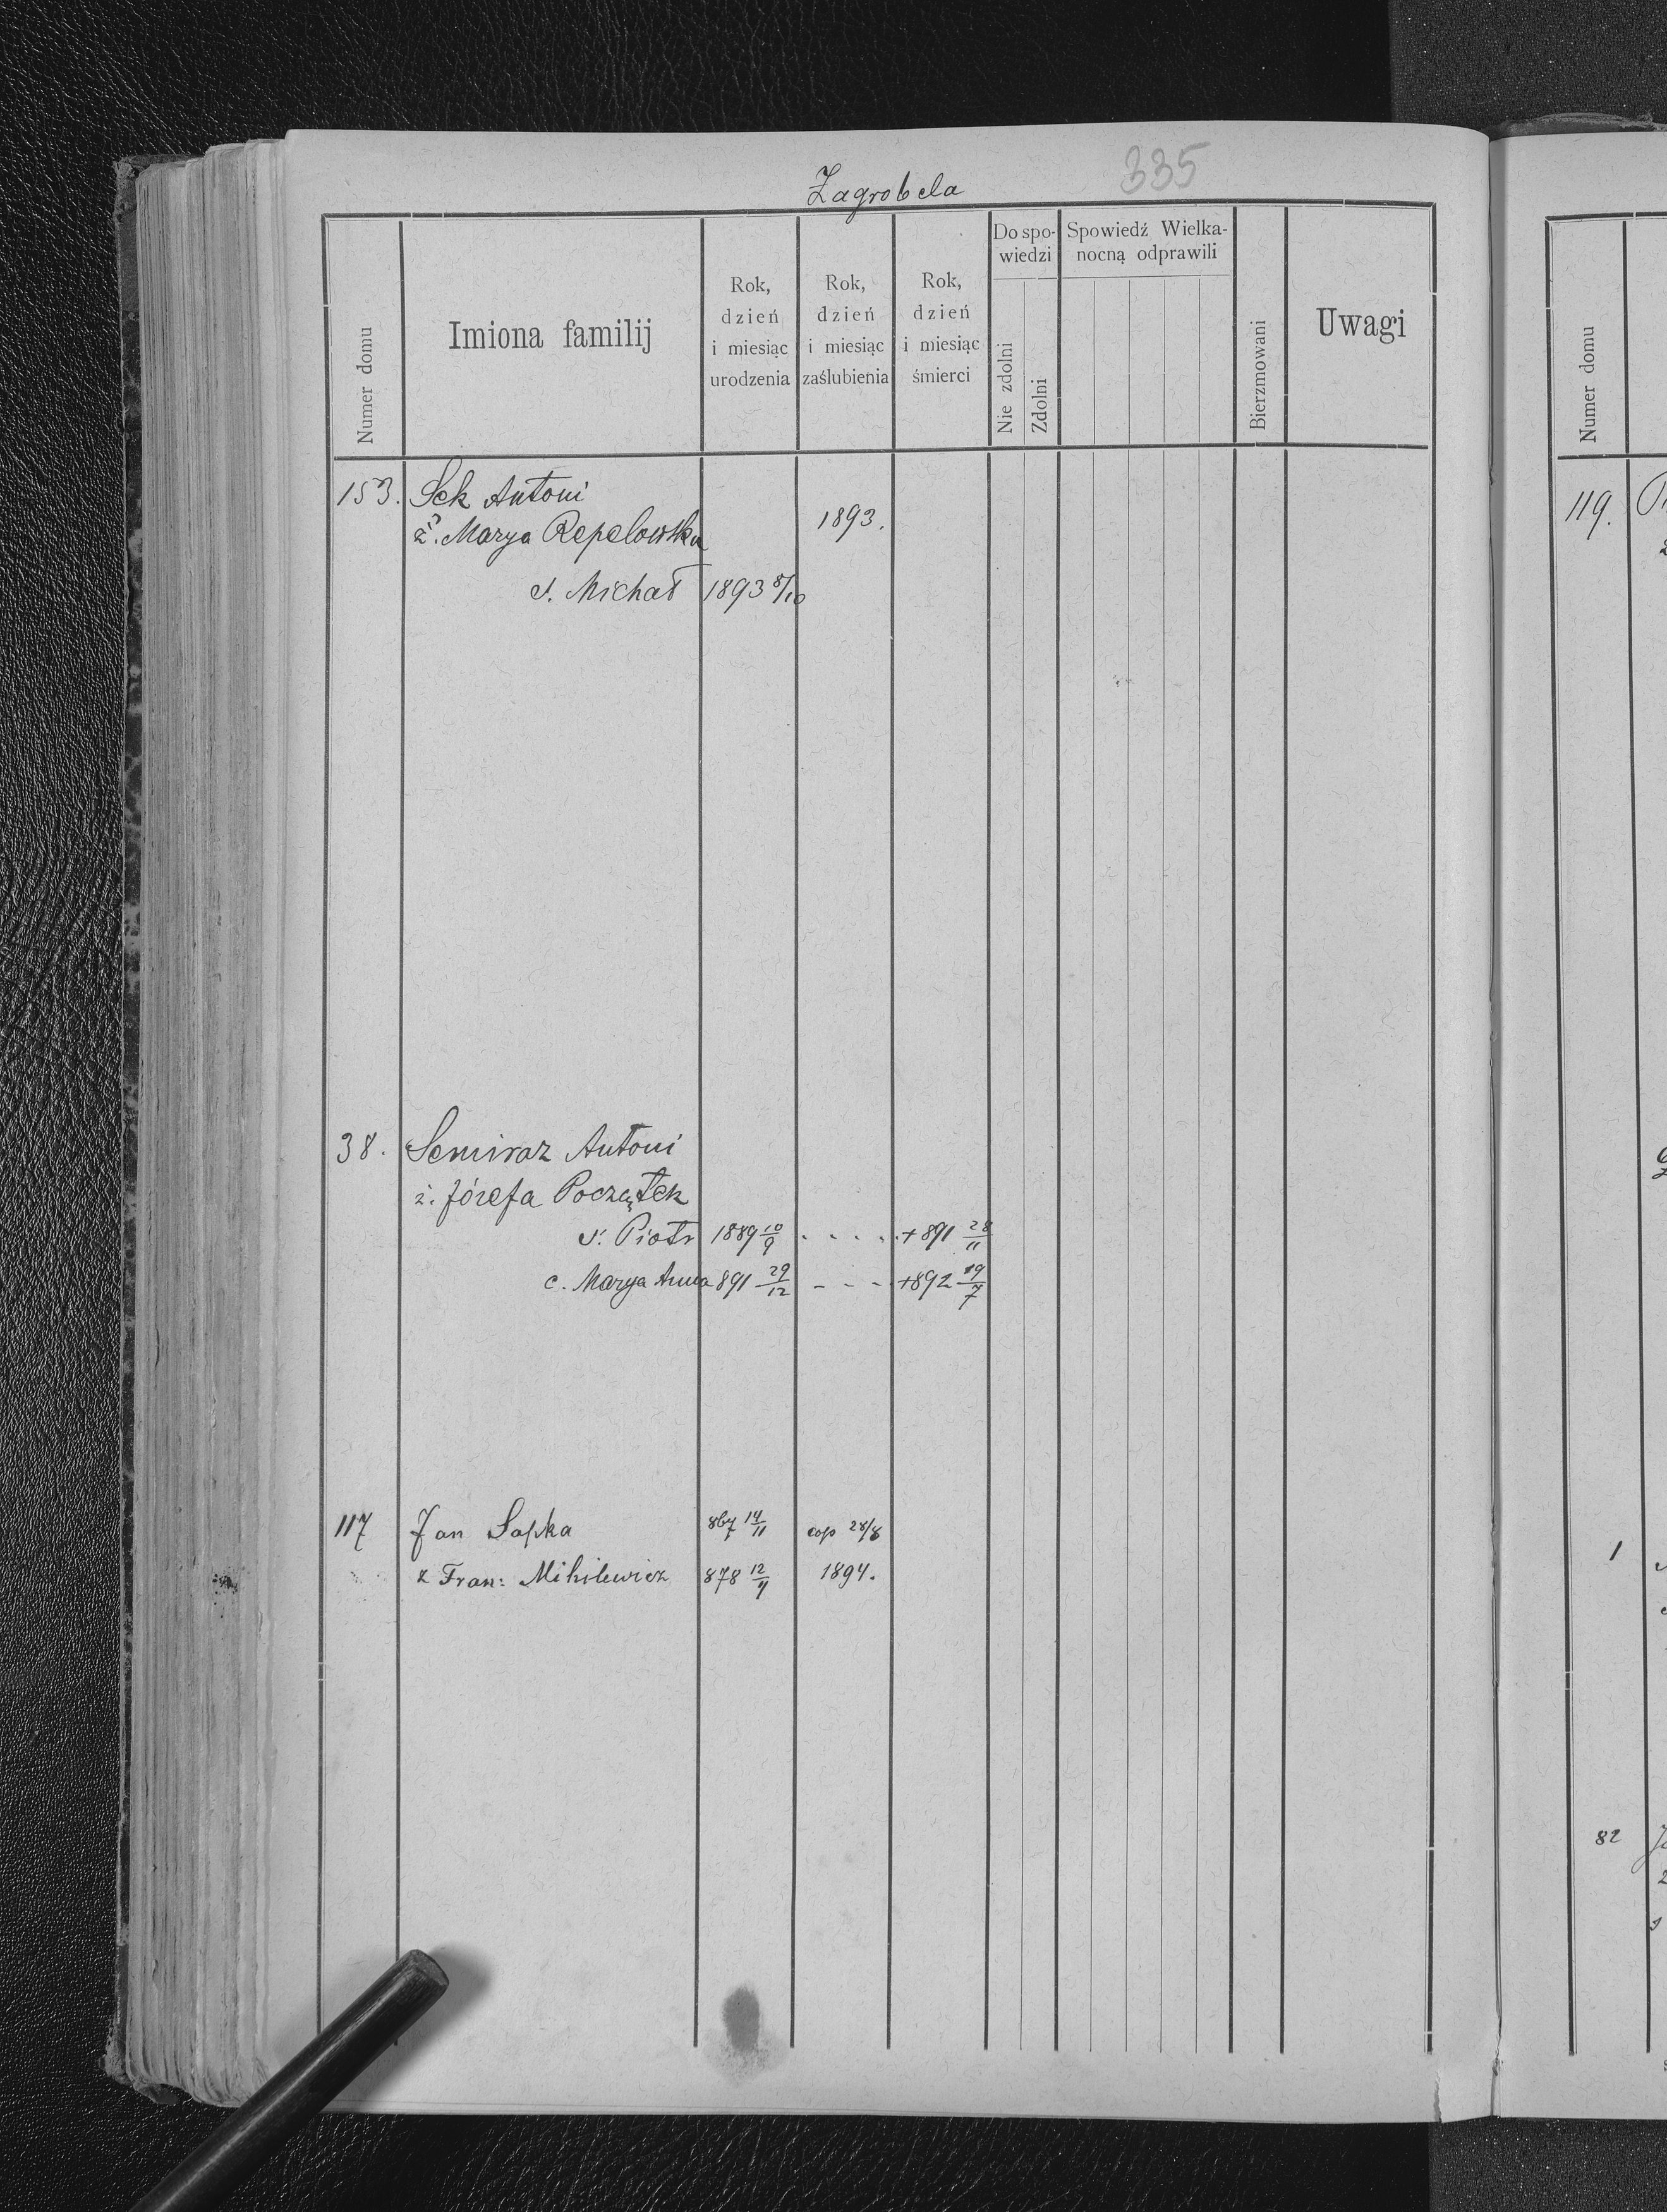 Zagrobela 335
Numer domu
Imiona familij
Rok, dzień i miesiąc urodzenia
Rok, dzień i miesiąc zaślubienia
Rok, dzień i miesiąc śmierci
Do spo-
wiedzi
Nie zdolni
Zdolni
Spowiedź Wielka-
nocną odprawili
Bierzmowani
Uwagi
153. Sek Antoni
ż. Marya Repelowska 1893.
s. Michał 1893 8/10
38. Semiraz Antoni
ż. Józefa Początek
s. Piotr 1889 10/9 . . . . . +891 28/11
c. Marya Anna 891 29/12 - - - +892 19/7
117 Jan Sapka 867 14/11 cop 28/8
ż Fran: Mihilewicz 878 12/4 1894.
Numer domu
119.
1
82